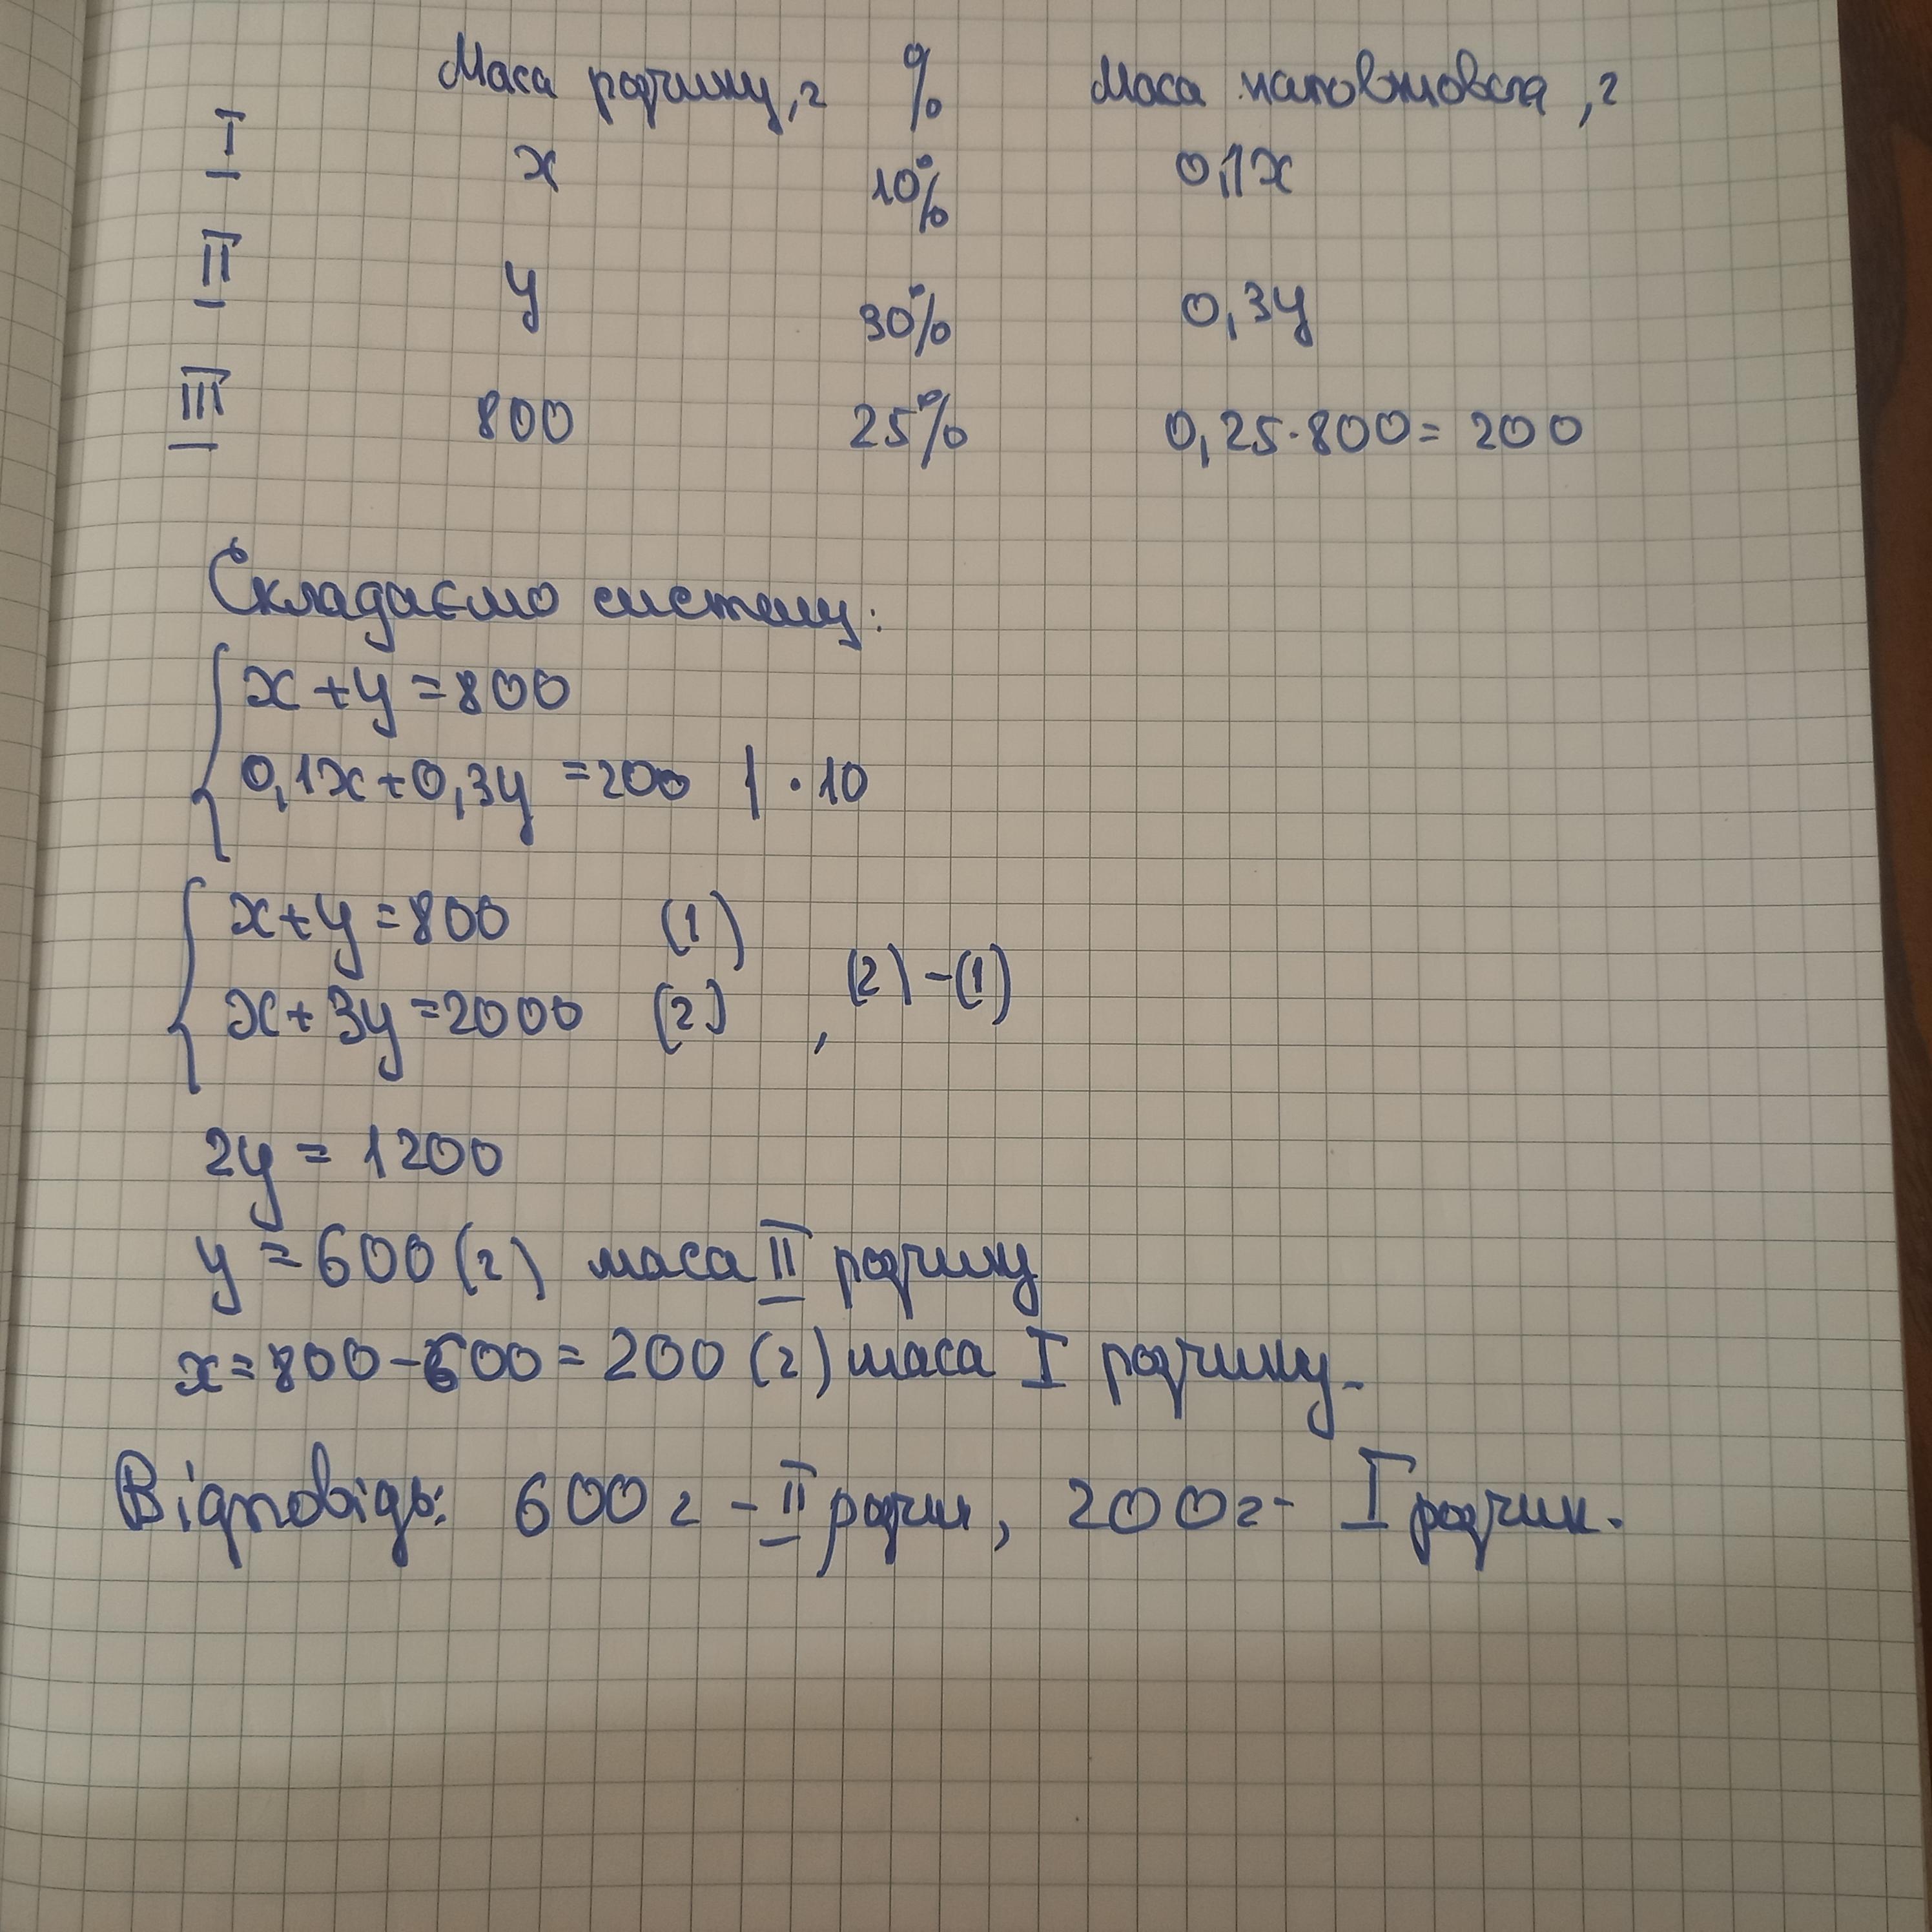 Маса розчину, г % Маса нашовмовсла, г
I x 10% 0,1x
II y 30% 0,3y
III 800 25% 0,25·800= 200
Складаємо систему:
x+y=800
0,1x+0,3y =200 | ·10
x+y=800 (1)
x+3y=2000 (2) , (2)-(1)
2y= 1200
y=600(г) маса II розчину
x=800-600=200(г) маса I розчину.
Відповідь: 600 г - II розчин, 200г- I розчин.